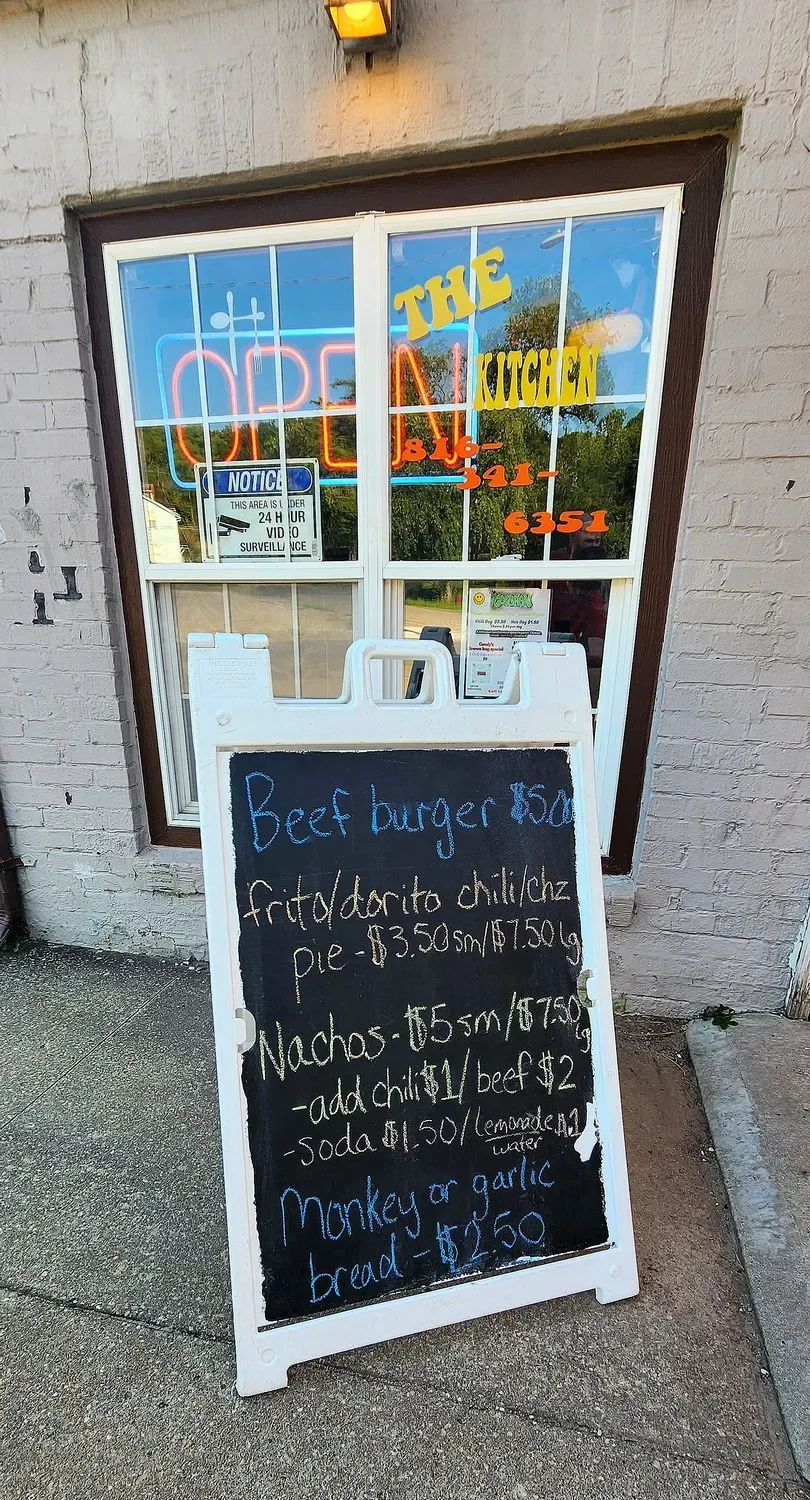 OPEN
THE
KITCHEN
816-
341-
6351
NOTICE
THIS AREA IS UNDER
24 HOUR
VIDEO
SURVEILLANCE
Chili Dog $2.50 Hot Dog $1.50
Beef burger $5.00
frito/dorito chili/chz
pie-$3.50sm/$7.50 lg
Nachos-$5sm/$7.50
lg
-add chili $1/beef $2
-soda $1.50/lemonade $1
water
Monkey or garlic
bread-$2.50